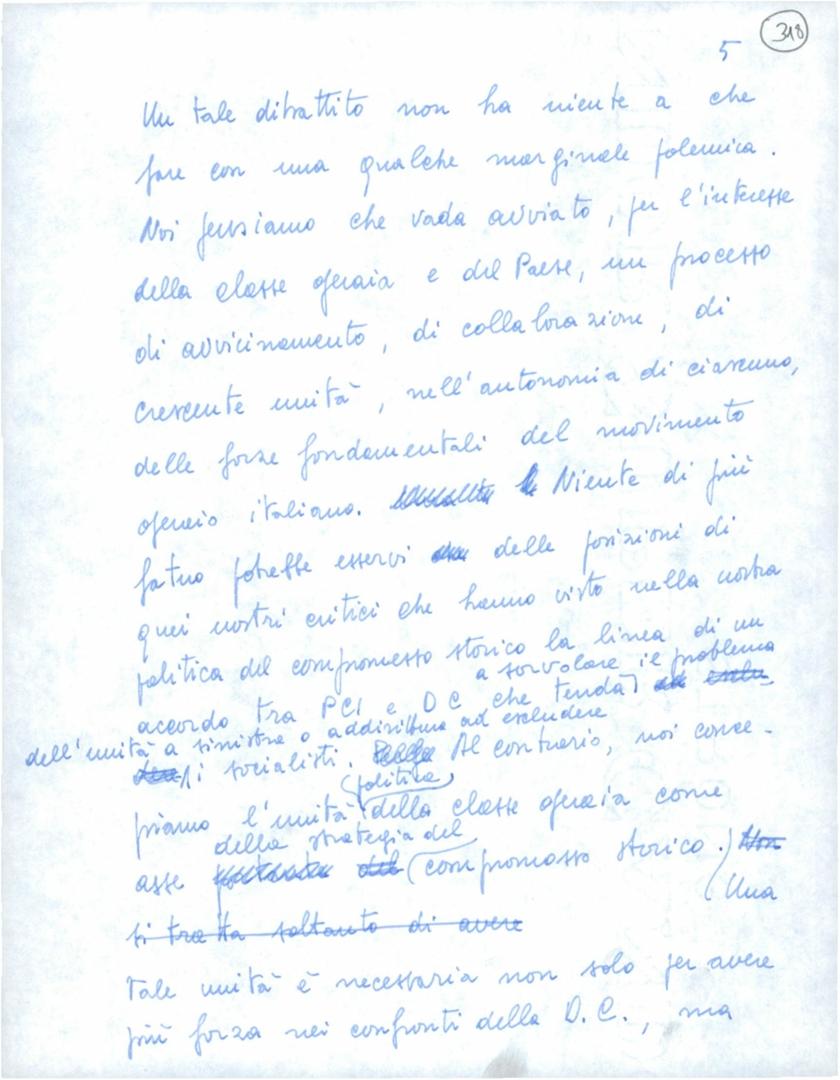 318
5
Un tale dibattito non ha niente a che
fare con una qualche marginale polemica.
Noi pensiamo che vada avviato, per l'interesse
della classe operaia e del Paese, un processo
di avvicinamento, di collaborazione, di
crescente unità, nell'autonomia di ciascuno,
delle forze fondamentali del movimento
operaio italiano. Niente di più
fatuo potrebbe esservi delle posizioni di
quei nostri critici che hanno visto nella nostra
politica del compromesso storico la linea di un
a sorvolare il problema
accordo tra PCI e DC che tenda
dell'unità a sinistra o addirittura ad escludere
i socialisti. Al contrario, noi conce-
politica
piamo l'unità della classe operaia come
della strategia del
asse compromesso storico. Non
Una
si tratta soltanto di avere
tale unità è necessaria non solo per avere
più forza nei confronti della D.C., ma